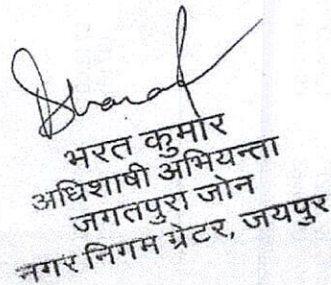 Bharat
भरत कुमार
अधिशाषी अभियन्ता
जगतपुरा जोन
नगर निगम ग्रेटर, जयपुर